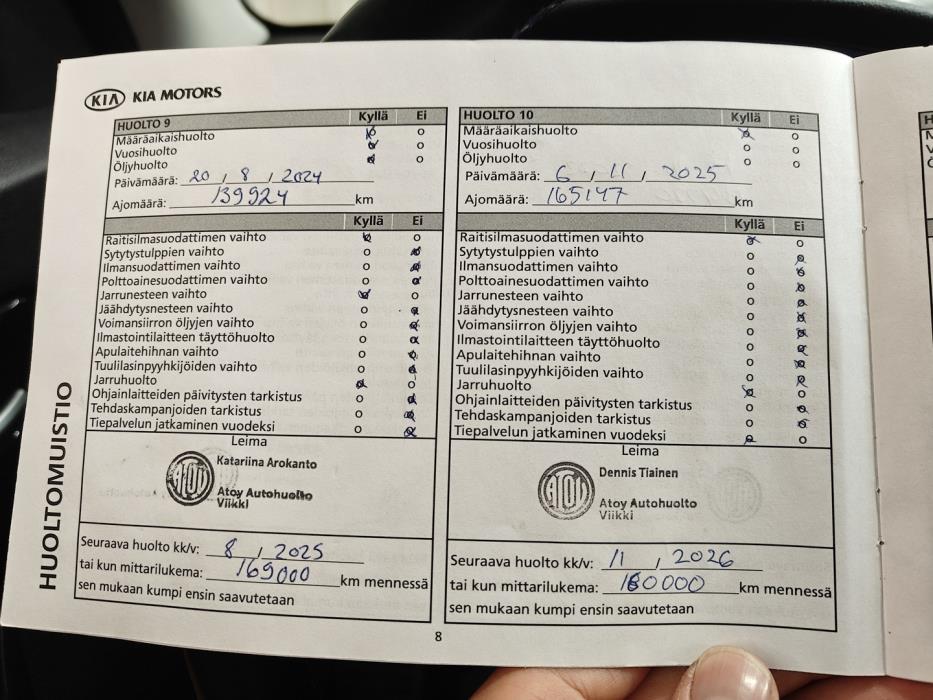 KIA KIA MOTORS
HUOLTO 9 Kyllä Ei
Määräaikaishuolto o
Vuosihuolto o
Öljyhuolto o
Päivämäärä: 20 / 8 / 2024
Ajomäärä: 139924 km
Kyllä Ei
Raitisilmasuodattimen vaihto o
Sytytystulppien vaihto o
Ilmansuodattimen vaihto o
Polttoainesuodattimen vaihto o
Jarrunesteen vaihto o
Jäähdytysnesteen vaihto o
Voimansiirron öljyjen vaihto o
Ilmastointilaitteen täyttöhuolto o
Apulaitehihnan vaihto o
Tuulilasinpyyhkijöiden vaihto o
Jarruhuolto o
Ohjainlaitteiden päivitysten tarkistus o
Tehdaskampanjoiden tarkistus o
Tiepalvelun jatkaminen vuodeksi o
Leima
ATOY
Katariina Arokanto
Atoy Autohuolto
Viikki
Seuraava huolto kk/v: 8 / 2025
tai kun mittarilukema: 169000 km mennessä
sen mukaan kumpi ensin saavutetaan
HUOLTO 10 Kyllä Ei
Määräaikaishuolto o
Vuosihuolto o o
Öljyhuolto o o
Päivämäärä: 6 / 11 / 2025
Ajomäärä: 165147 km
Kyllä Ei
Raitisilmasuodattimen vaihto o
Sytytystulppien vaihto o
Ilmansuodattimen vaihto o
Polttoainesuodattimen vaihto o
Jarrunesteen vaihto o
Jäähdytysnesteen vaihto o
Voimansiirron öljyjen vaihto o
Ilmastointilaitteen täyttöhuolto o
Apulaitehihnan vaihto o
Tuulilasinpyyhkijöiden vaihto o
Jarruhuolto o
Ohjainlaitteiden päivitysten tarkistus o
Tehdaskampanjoiden tarkistus o
Tiepalvelun jatkaminen vuodeksi o
Leima
ATOY
Dennis Tiainen
Atoy Autohuolto
Viikki
Seuraava huolto kk/v: 11 / 2026
tai kun mittarilukema: km mennessä
sen mukaan kumpi ensin saavutetaan
HUOLTOMUISTIO
8